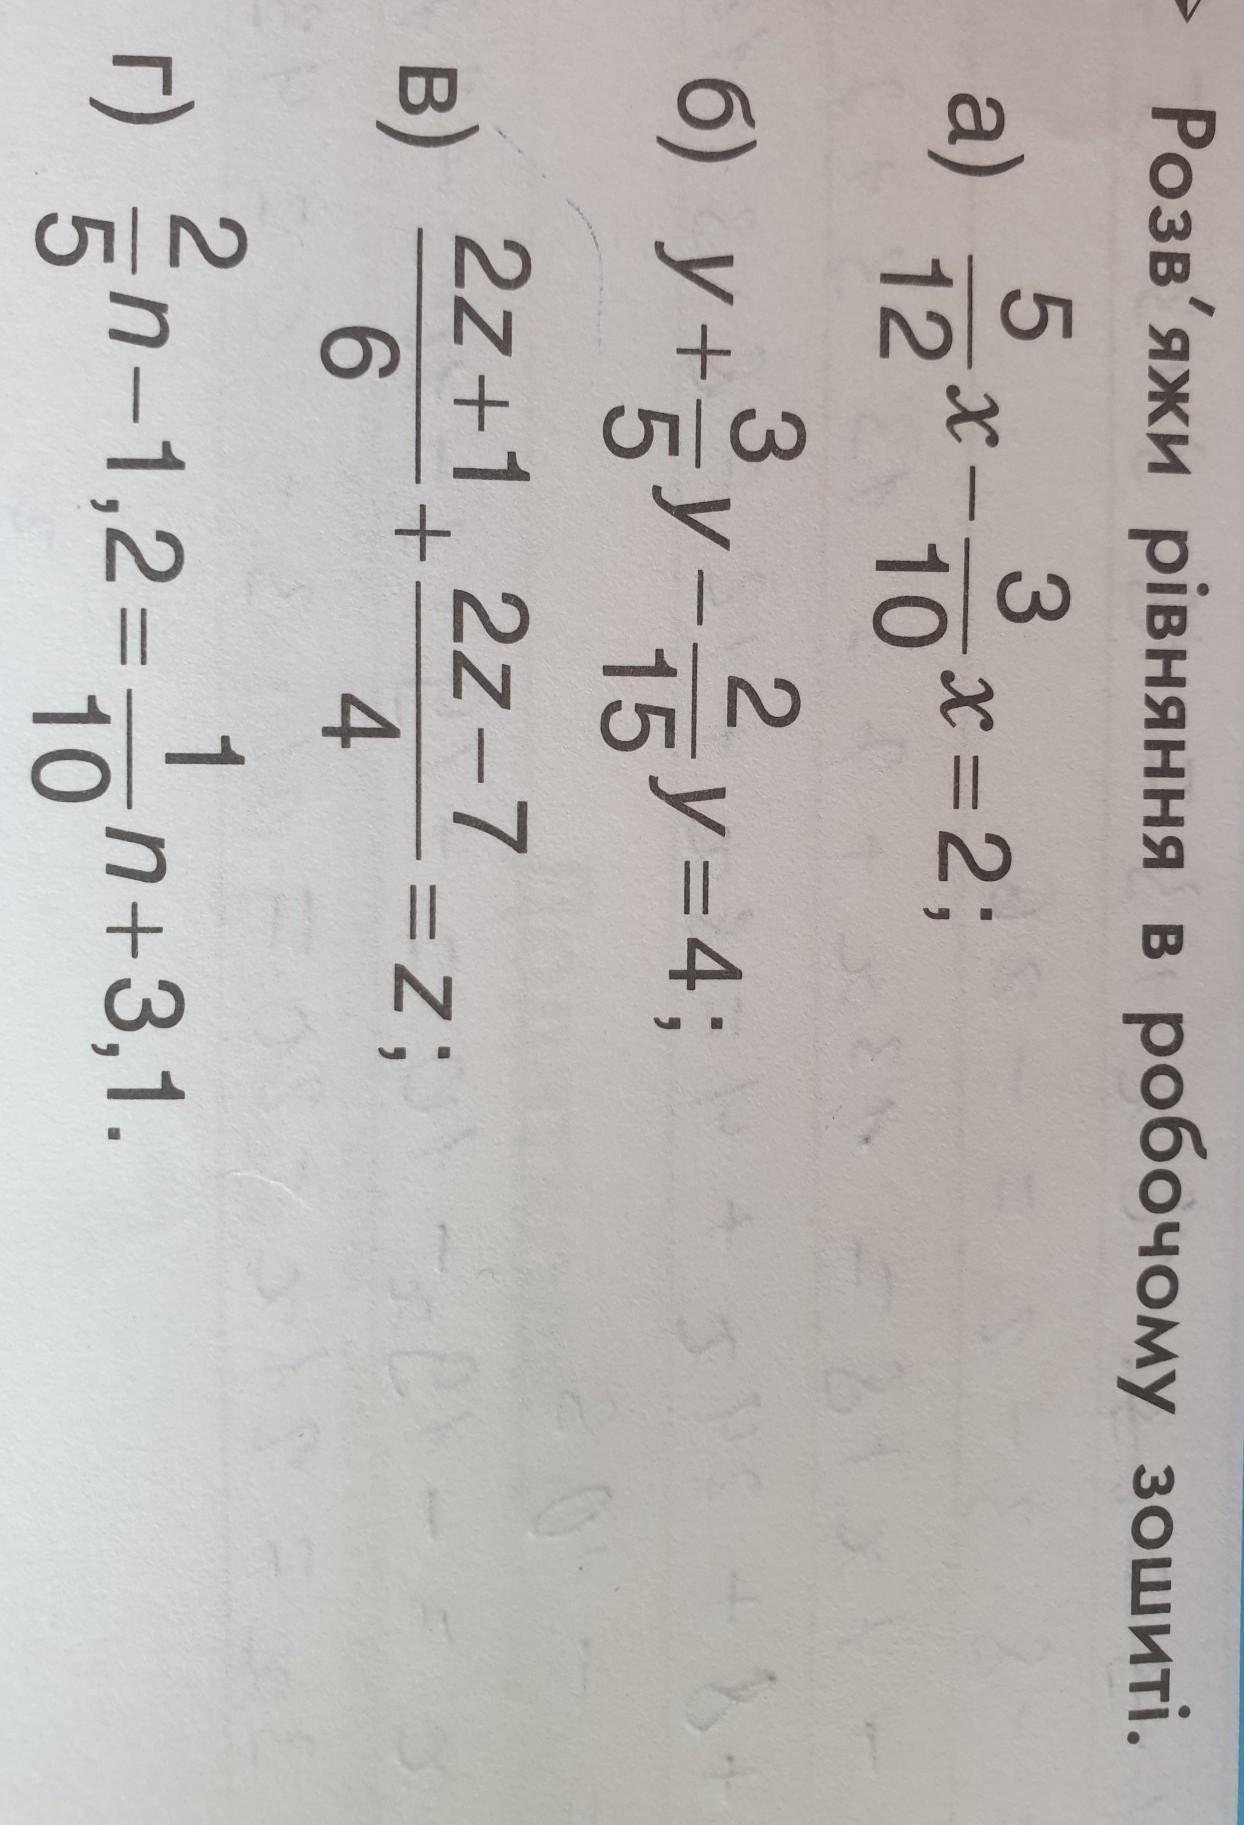 Розв'яжи рівняння в робочому зошиті.
а) 5/12 x − 3/10 x = 2;
б) y + 3/5 y − 2/15 y = 4;
в) (2z + 1)/6 + (2z − 7)/4 = z;
г) 2/5 n − 1,2 = 1/10 n + 3,1.